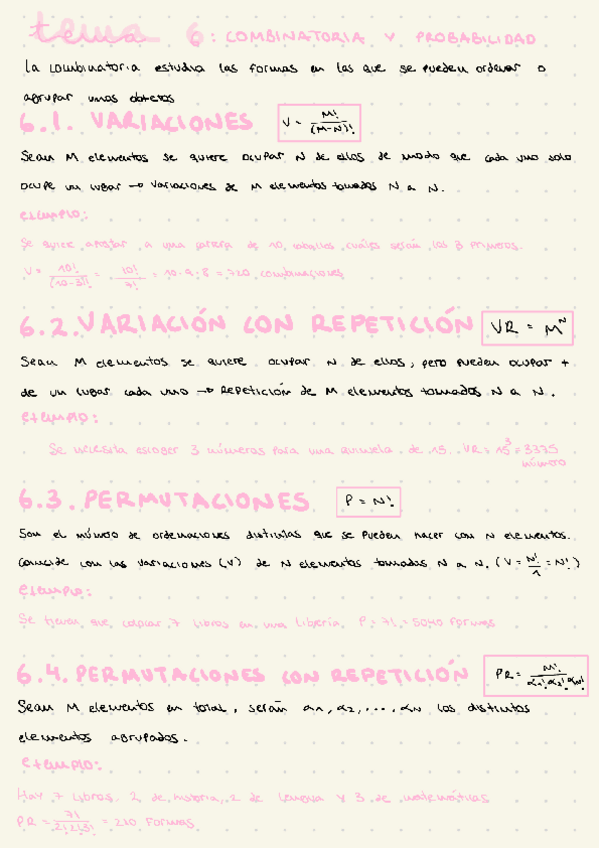 tema 6: COMBINATORIA Y PROBABILIDAD
La combinatoria estudia las formas en las que se pueden ordenar o
agrupar unos objetos
6.1. VARIACIONES V = M! / (M-N)!
Sean M elementos se quiere ocupar N de ellos de modo que cada uno solo
ocupe un lugar → variaciones de M elementos tomados N a N.
ejemplo:
Se quiere apostar a una carrera de 10 caballos, cuáles serán los 3 primeros.
V = 10! / (10-3)! = 10! / 7! = 10·9·8 = 720 combinaciones
6.2. VARIACIÓN CON REPETICIÓN VR = M^N
Sean M elementos se quiere ocupar N de ellos, pero pueden ocupar +
de un lugar cada uno → Repetición de M elementos tomados N a N.
ejemplo:
Se necesita escoger 3 números para una quiniela de 15. VR = 15^3 = 3375
número
6.3. PERMUTACIONES P = N!
Son el número de ordenaciones distintas que se pueden hacer con N elementos.
Coincide con las variaciones (V) de N elementos tomados N a N. (V = N!/1 = N!)
ejemplo:
Se tienen que colocar 7 libros en una librería. P = 7! = 5040 formas
6.4. PERMUTACIONES CON REPETICIÓN PR = M! / α1! α2! αN!
Sean M elementos en total, serán α1, α2, ..., αN los distintos
elementos agrupados.
ejemplo:
Hay 7 libros. 2 de historia, 2 de lengua y 3 de matemáticas
PR = 7! / 2!2!3! = 210 formas